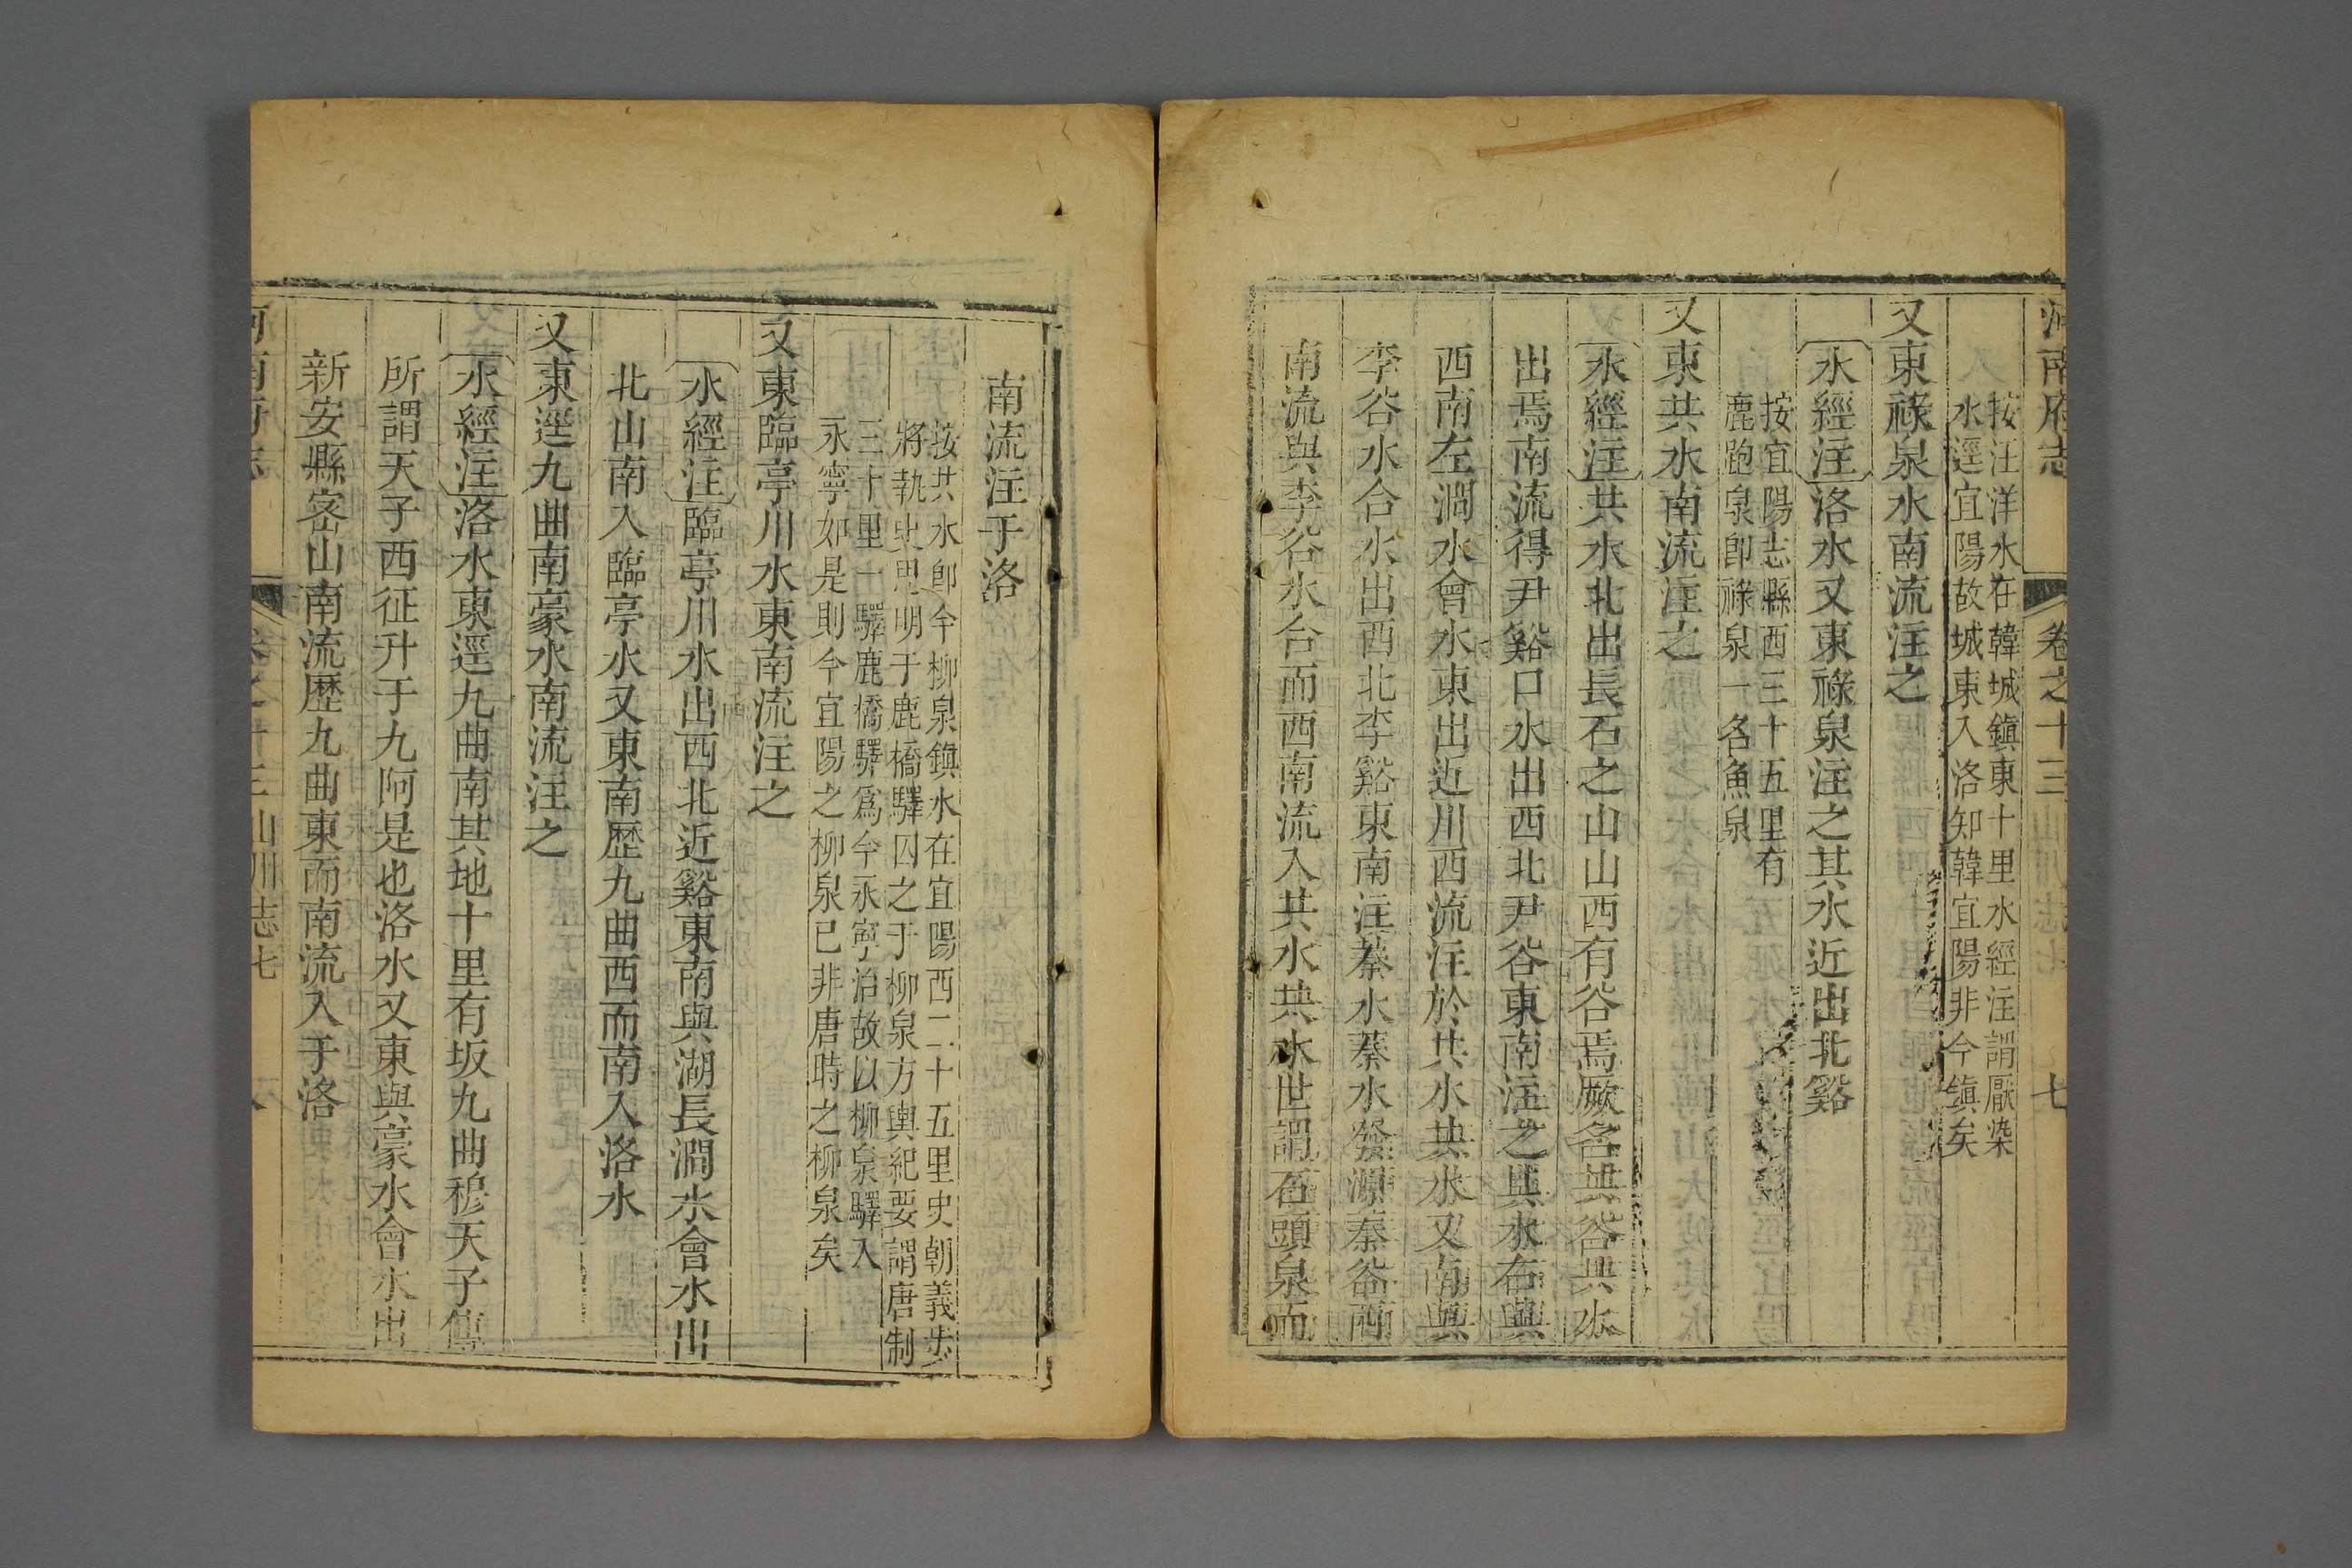 河南府志 卷之十三 山川志七 七
按汪洋水在韓城鎮東十里水經注謂厭染
水逕宜陽故城東入洛知韓宜陽非今鎮矣
又東祿泉水南流注之
水經注洛水又東祿泉注之其水近出北谿
按宜陽志縣西三十五里有
鹿跑泉卽祿泉一名魚泉
又東共水南流注之
水經注共水北出長石之山山西有谷焉厥名共谷共水
出焉南流得尹谿口水出西北尹谷東南注之其水右與
西南左澗水會水東出近川西流注於共水共水又南與
李谷水合水出西北李谿東南注蓁水蓁水發源蓁谷西
南流與李谷水合而西南流入共水共水世謂石頭泉而
南流注于洛
按共水卽今柳泉鎮水在宜陽西二十五里史朝義步
將執史思明于鹿橋驛囚之于柳泉方輿紀要謂唐制
三十里一驛鹿橋驛爲今永寧治故以柳泉驛入
永寧如是則今宜陽之柳泉已非唐時之柳泉矣
又東臨亭川水東南流注之
水經注臨亭川水出西北近谿東南與湖長澗水會水出
北山南入臨亭水又東南歷九曲西而南入洛水
又東逕九曲南豪水南流注之
水經注洛水東逕九曲南其地十里有坂九曲穆天子傳
所謂天子西征升于九阿是也洛水又東與豪水會水出
新安縣密山南流歷九曲東而南流入于洛
河南府志 卷之十三 山川志七 八